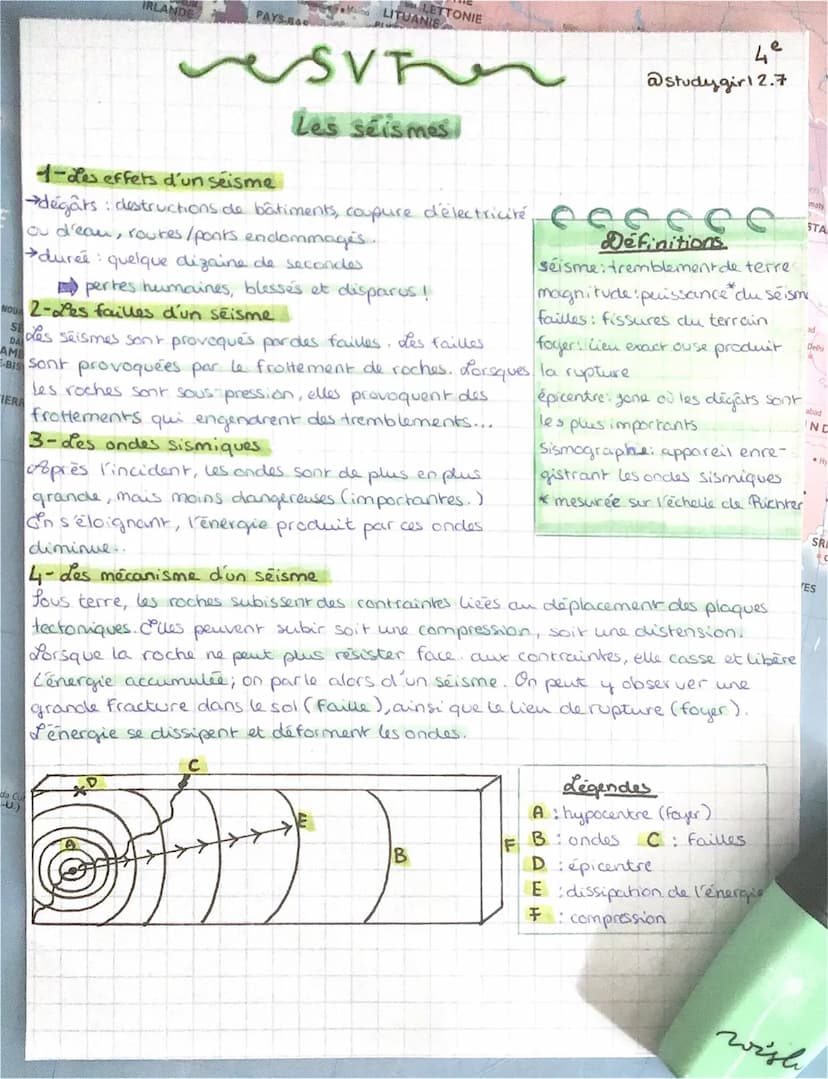 IRLANDE
PAYS-BAS
LITUANIE
LETTONIE
SVT
4e
@studygirl2.7
Les séismes
1-Les effets d'un séisme
→dégâts : destructions de bâtiments, coupure d'électricité
ou d'eau, routes/ponts endommagés.
→durée : quelque dizaine de secondes
⇒ pertes humaines, blessés et disparus !
2-Les failles d'un séisme
Les séismes sont provoqués par des failles. Les failles
sont provoquées par le frottement de roches. Lorsques
les roches sont sous-pression, elles provoquent des
frottements qui engendrent des tremblements...
3-Les ondes sismiques
Après l'incident, les ondes sont de plus en plus
grande, mais moins dangereuses (importantes.)
En s'éloignant, l'énergie produit par ces ondes
diminue..
Définitions
séisme: tremblement de terre
magnitude: puissance* du séism
failles: fissures du terrain
foyer: lieu exact ou se produit
la rupture
épicentre: zone où les dégâts sont
les plus importants
Sismographe: appareil enre-
gistrant les ondes sismiques
* mesurée sur l'échelle de Richter
4-Les mécanisme d'un séisme
Sous terre, les roches subissent des contraintes liées au déplacement des plaques
tectoniques. Elles peuvent subir soit une compression, soit une distension.
Lorsque la roche ne peut plus résister face aux contraintes, elle casse et libère
l'énergie accumulée; on parle alors d'un séisme. On peut y observer une
grande fracture dans le sol (faille), ainsi que le lieu de rupture (foyer).
L'énergie se dissipent et déforment les ondes.
C
D
A
E
B
F
Légendes
A : hypocentre (foyer)
B : ondes C : failles
D : épicentre
E : dissipation de l'énergie
F : compression
wish